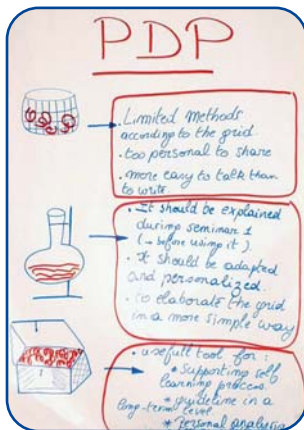 PDP
. Limited Methods
according to the grid.
. too personal to share
. more easy to talk than
to write.
. It should be explained
during seminar 1
(→ before using it).
. It should be adapted
and personalized.
. to elaborate the grid
in a more simple way
. usefull tool for:
* supporting self
learning process.
* guideline in a
long-term level
* personal analysis